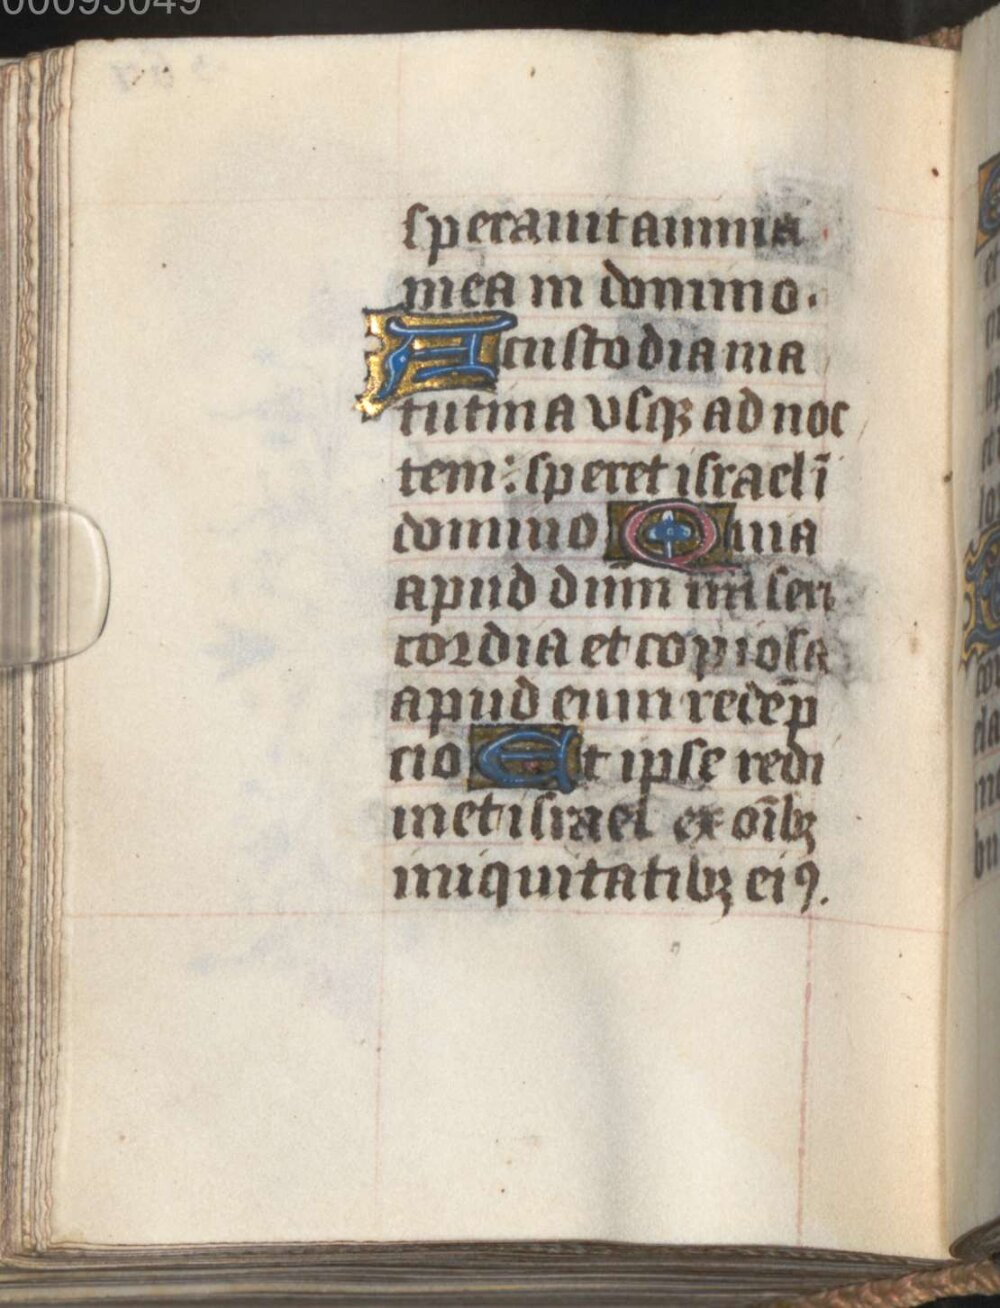 00095049
sperauit anima
mea in domino.
A custodia ma
tutina vsqꝫ ad noc
tem: speret israel ī
domino Quia
apud dūm mi seri
cordia et copiosa
apud eum redēp
cio Et ipse redi
met israel ex oībꝫ
iniquitatibꝫ eiꝰ.